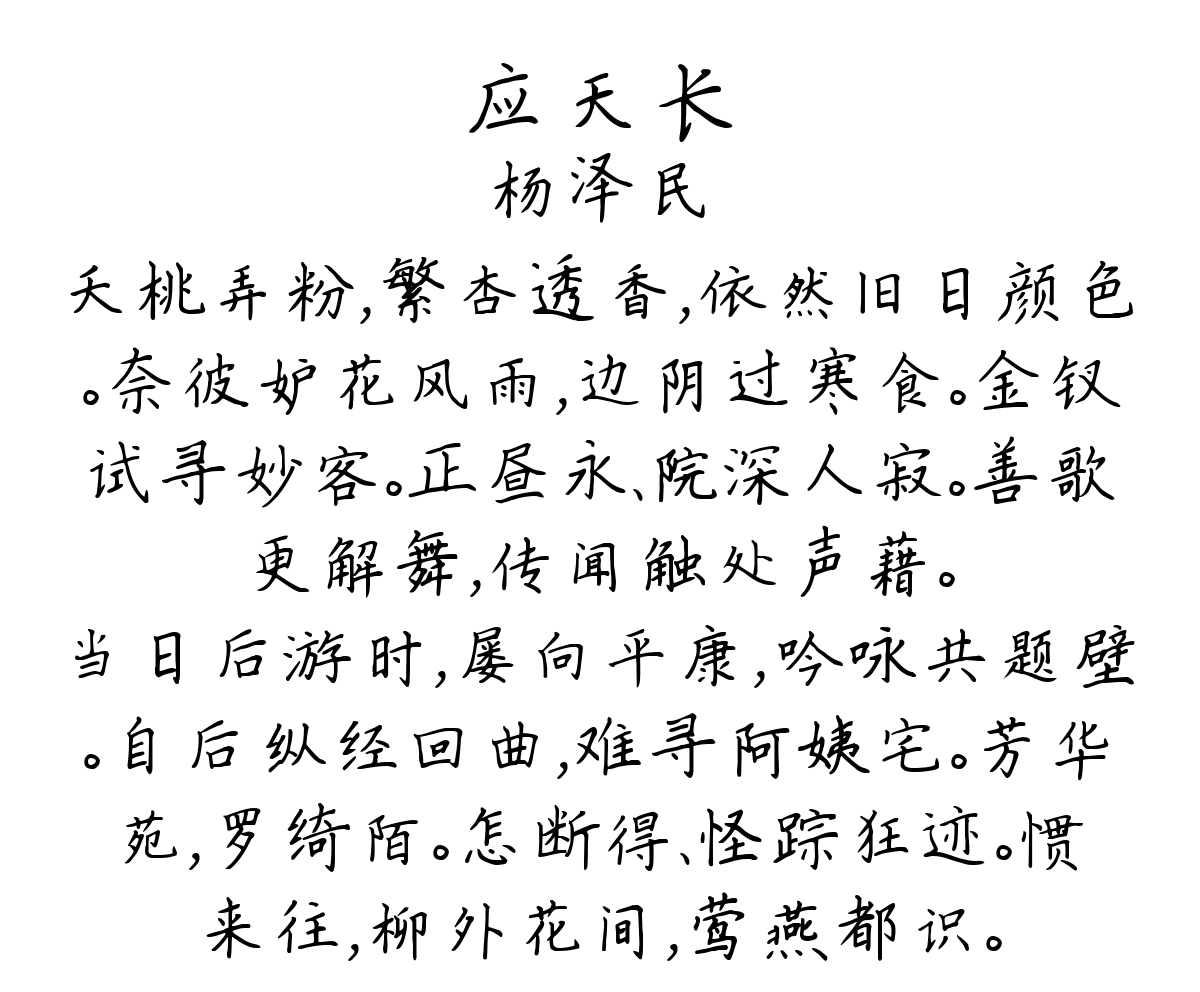 应天长
杨泽民
夭桃弄粉,繁杏透香,依然旧日颜色
。奈彼妒花风雨,边阴过寒食。金钗
试寻妙客。正昼永、院深人寂。善歌
更解舞,传闻触处声藉。
当日后游时,屡向平康,吟咏共题壁
。自后纵经回曲,难寻阿姨宅。芳华
苑,罗绮陌。怎断得、怪踪狂迹。惯
来往,柳外花间,莺燕都识。